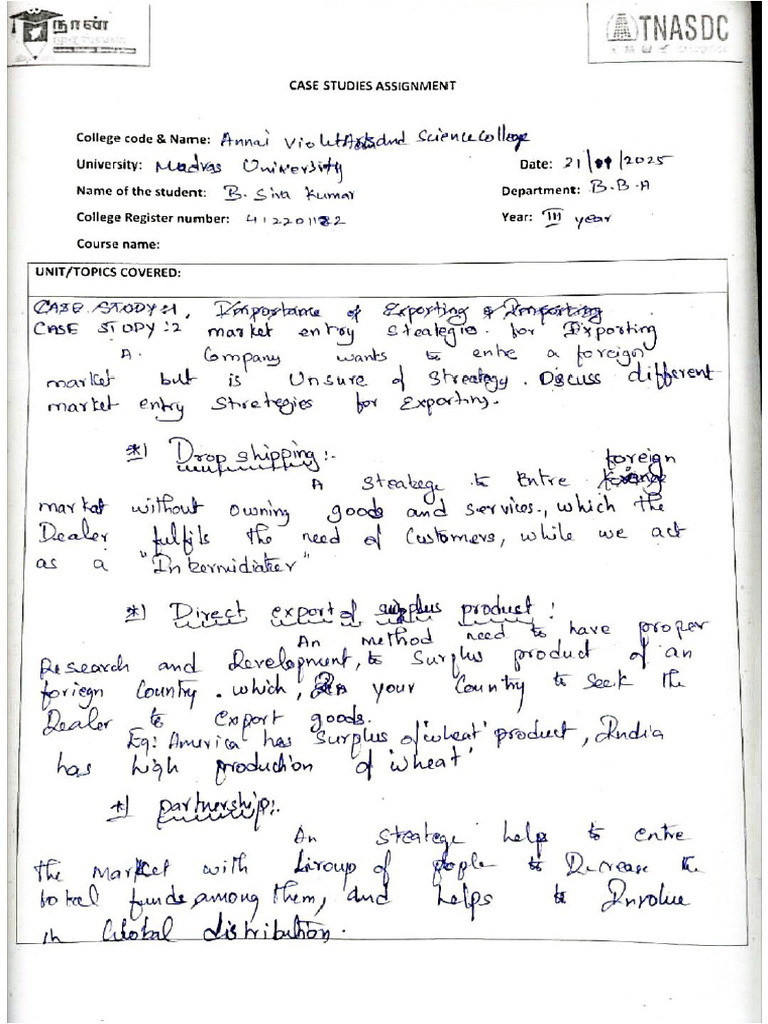 நான்
TNASDC
CASE STUDIES ASSIGNMENT
College code & Name: Annai Violet Arts and Science College
University: Madras University Date: 21/01/2025
Name of the student: B. Siva Kumar Department: B.B.A
College Register number: 412201182 Year: III year
Course name:
UNIT/TOPICS COVERED:
CASE STUDY:1, Importance of Exporting & Importing
CASE STUDY:2 market entry Steategis. for Exporting
A. Company wants to entre a foreign
market but is Unsure of Streategy. Discuss different
market entry Stretegies for Exporting.
*) Drop shipping:.
foreign
A steatege to Entre
market without owning goods and services., which the
Dealer fulfils the need of Customers, while we act
as a "Intermidiater"
*) Direct export of surplus product:
An method need to have proper
Research and Development, to Surplus product of an
foriegn Country. which, In your Country to Seek the
Dealer to export goods.
Eg: America has Surplus of 'wheat' product, India
has high production of 'wheat'
*) partnership:.
An Steatege help to entre
the Market with Group of people to Decrease the
total funds, among them, and helps to Involue
in Global distribution.